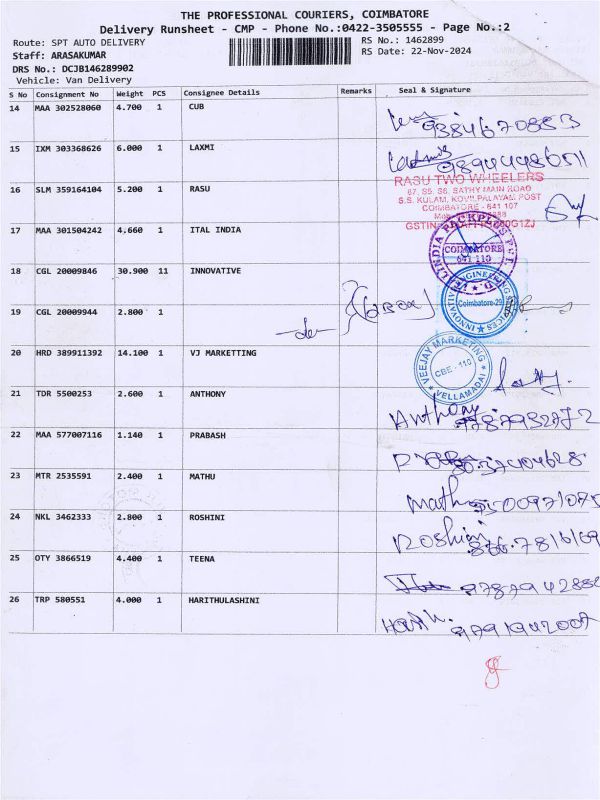 THE PROFESSIONAL COURIERS, COIMBATORE
Delivery Runsheet - CMP - Phone No.:0422-3505555 - Page No.:2
Route: SPT AUTO DELIVERY
RS No.: 1462899
Staff: ARASAKUMAR
RS Date: 22-Nov-2024
DRS No.: DCJB146289902
Vehicle: Van Delivery
S No Consignment No Weight PCS Consignee Details Remarks Seal & Signature
14 MAA 302528060 4.700 1 CUB
9384670853
15 IXM 303368626 6.000 1 LAXMI
Laxmi 98944496511
16 SLM 359164104 5.200 1 RASU
RASU TWO WHEELERS
87, S5, S6, SATHY MAIN ROAD
S.S. KULAM, KOVILPALAYAM POST
COIMBATORE - 641 107
17 MAA 301504242 4.660 1 ITAL INDIA
COIMBATORE
641 110
18 CGL 20009846 30.900 11 INNOVATIVE
INNOVATIVE ENGINEERING SERVICES
Coimbatore-29
19 CGL 20009944 2.800 1
20 HRD 389911392 14.100 1 VJ MARKETTING
VEEJAY MARKETING
CBE - 110
VELLAMADAI
21 TDR 5500253 2.600 1 ANTHONY
Anthony
22 MAA 577007116 1.140 1 PRABASH
23 MTR 2535591 2.400 1 MATHU
Mathu
24 NKL 3462333 2.800 1 ROSHINI
Roshini
25 OTY 3866519 4.400 1 TEENA
26 TRP 580551 4.000 1 HARITHULASHINI
9791942007